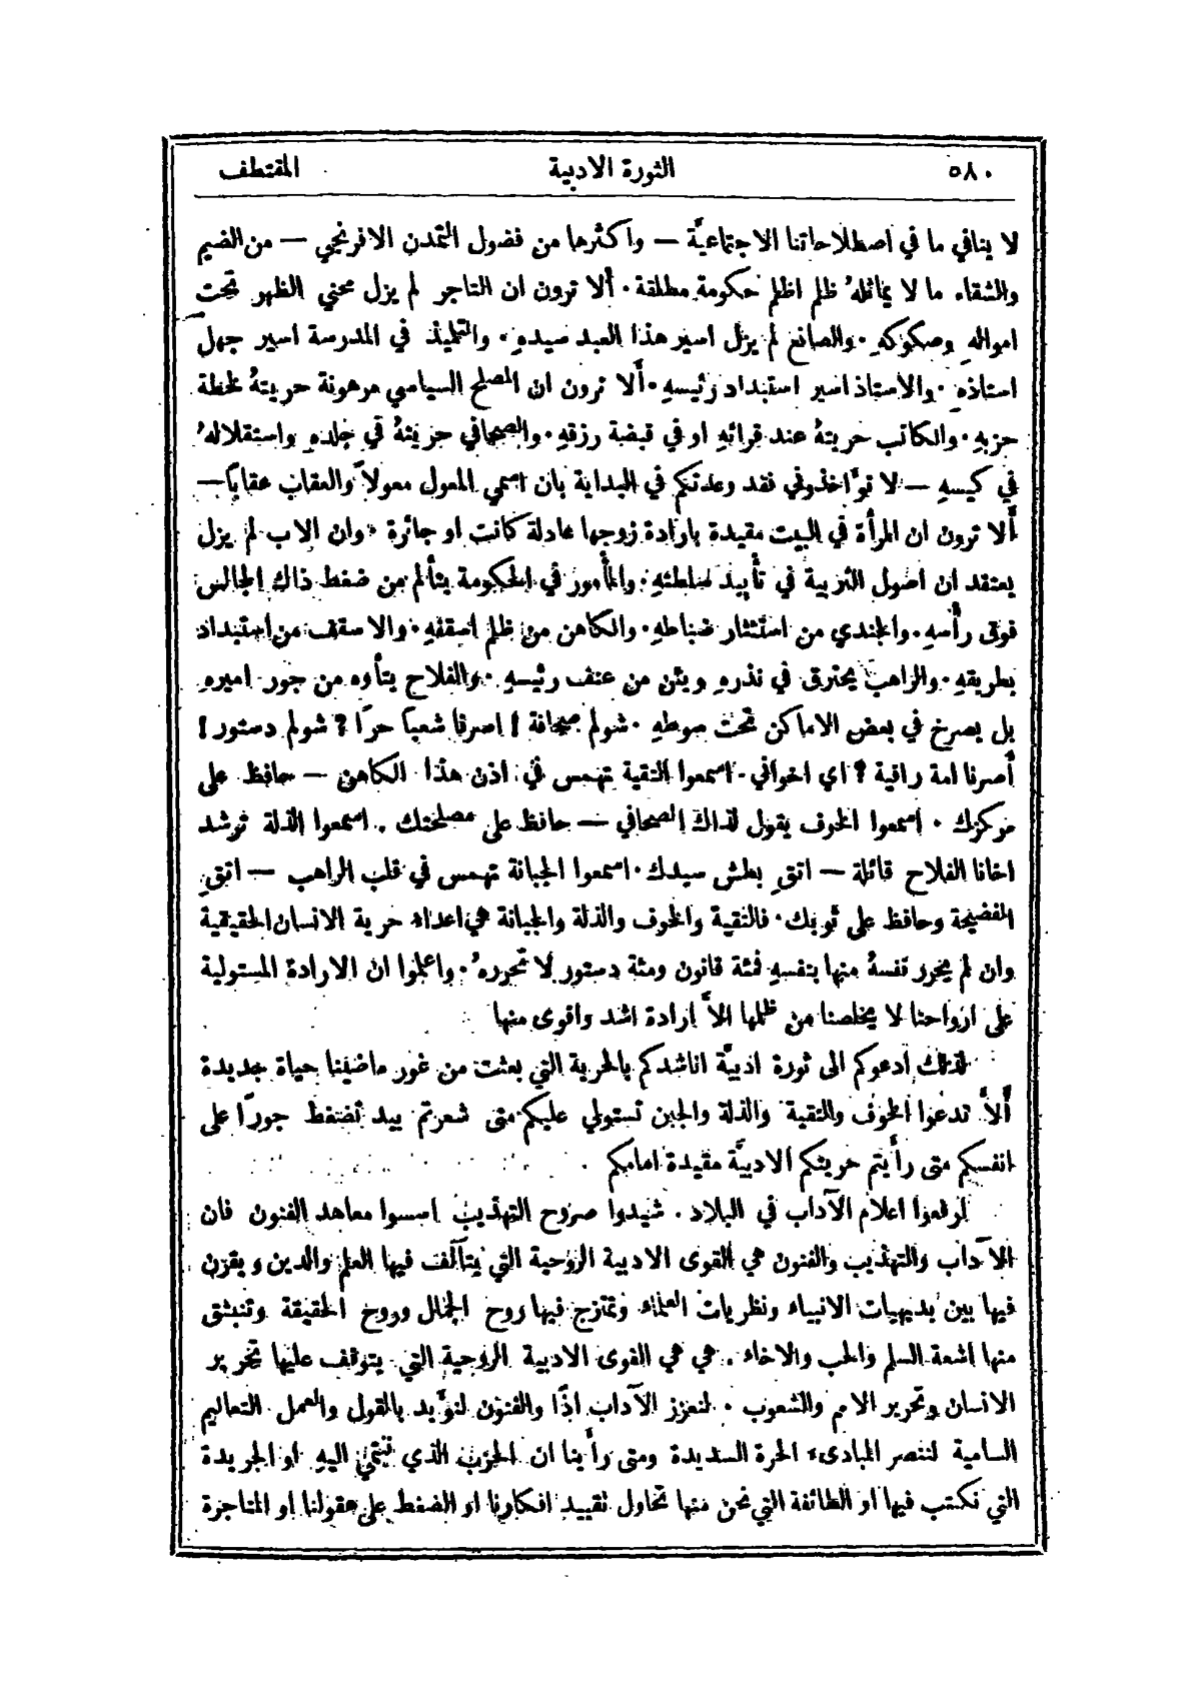 ٥٨٠ الثورة الادبية المقتطف
لا ينافي ما في اصطلاحاتنا الاجتماعيَّة — واكثرها من فضول التمدن الافرنجي — من الضيم
والشقاء ما لا يماثلهُ ظلم اظلم حكومة مطلقة . ألا ترون ان التاجر لم يزل محني الظهر تحت
امواله وصكوكهِ . والصانع لم يزل اسير هذا العبد سيدهِ . والتلميذ في المدرسة اسير جهل
استاذهِ . والاستاذ اسير استبداد رئيسهِ . ألا ترون ان المصلح السياسي مرهونة حريتهُ لخطة
حزبهِ . والكاتب حريتهُ عند قرائهِ او في قبضة رزقهِ . والصحافي حريتهُ في جلدهِ واستقلالهُ
في كيسهِ — لا تؤاخذوني فقد وعدتكم في البداية بان اسمي المعول معولاً والعقاب عقاباً —
ألا ترون ان المرأة في البيت مقيدة بارادة زوجها عادلة كانت او جائرة . وان الاب لم يزل
يعتقد ان اصول التربية في تأييد سلطتهِ . والمأمور في الحكومة يتألم من ضغط ذاك الجالس
فوق رأسهِ . والجندي من استئثار ضباطهِ . والكاهن من ظلم اسقفهِ . والاسقف من استبداد
بطريقهِ . والراهب يحترق في نذرهِ ويئن من عنف رئيسهِ . والفلاح يتأوه من جور اميرهِ
بل يصرخ في بعض الاماكن تحت سوطهِ . شولم صحافة ! اصرنا شعباً حرًّا ؟ شولم دستور !
أصرنا امة راقية ؟ اي اخواني . اسمعوا التقية تهمس في اذن هذا الكاهن — حافظ على
مركزك . اسمعوا الخوف يقول لذاك الصحافي — حافظ على مصلحتك . اسمعوا الذلة ترشد
اخانا الفلاح قائلة — اتقِ بطش سيدك . اسمعوا الجبانة تهمس في قلب الراهب — اتقِ
الفضيحة وحافظ على ثوبك . فالتقية والخوف والذلة والجبانة هي اعداء حرية الانسان الحقيقية
وان لم يحرر نفسهُ منها بنفسهِ فمئة قانون ومئة دستور لا تحررهُ . واعلموا ان الارادة المستولية
على ارواحنا لا يخلصنا من ظلمها الاَّ ارادة اشد واقوى منها
لذلك ادعوكم الى ثورة ادبيَّة اناشدكم بالحرية التي بعثت من غور ماضينا حياة جديدة
ألاَّ تدعوا الخوف والتقية والذلة والجبن تستولي عليكم متى شعرتم بيد تضغط جورًا على
انفسكم متى رأيتم حريتكم الادبيَّة مقيدة امامكم
ارفعوا اعلام الآداب في البلاد . شيدوا صروح التهذيب اسسوا معاهد الفنون فان
الآداب والتهذيب والفنون هي القوى الادبية الروحية التي يتآلف فيها العلم والدين ويقرن
فيها بين بديهيات الانبياء ونظريات العلماء وتمتزج فيها روح الجمال وروح الحقيقة وتنبثق
منها اشعة السلم والحب والاخاء . هي هي القوى الادبية الروحية التي يتوقف عليها تحرير
الانسان وتحرير الامم والشعوب . لنعزز الآداب اذًا والفنون لنؤيد بالقول والعمل التعاليم
السامية لننصر المبادئ الحرة السديدة ومتى رأينا ان الحزب الذي ننتمي اليهِ او الجريدة
التي نكتب فيها او الطائفة التي نحن منها تحاول تقييد افكارنا او الضغط على عقولنا او المتاجرة